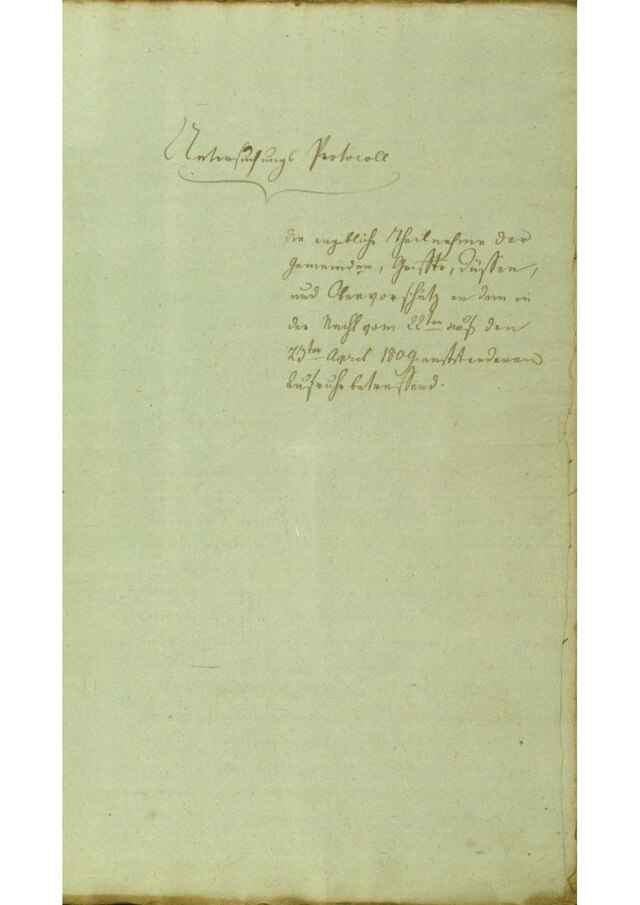 Untersuchungs Protocoll
die angebliche Theilnahme der
Gemeinden, Griffte, Dissen,
und Obervorschütz an dem in
der Nacht vom 22ten auf den
23ten April 1809 entstandenen
Aufruhr betreffend.